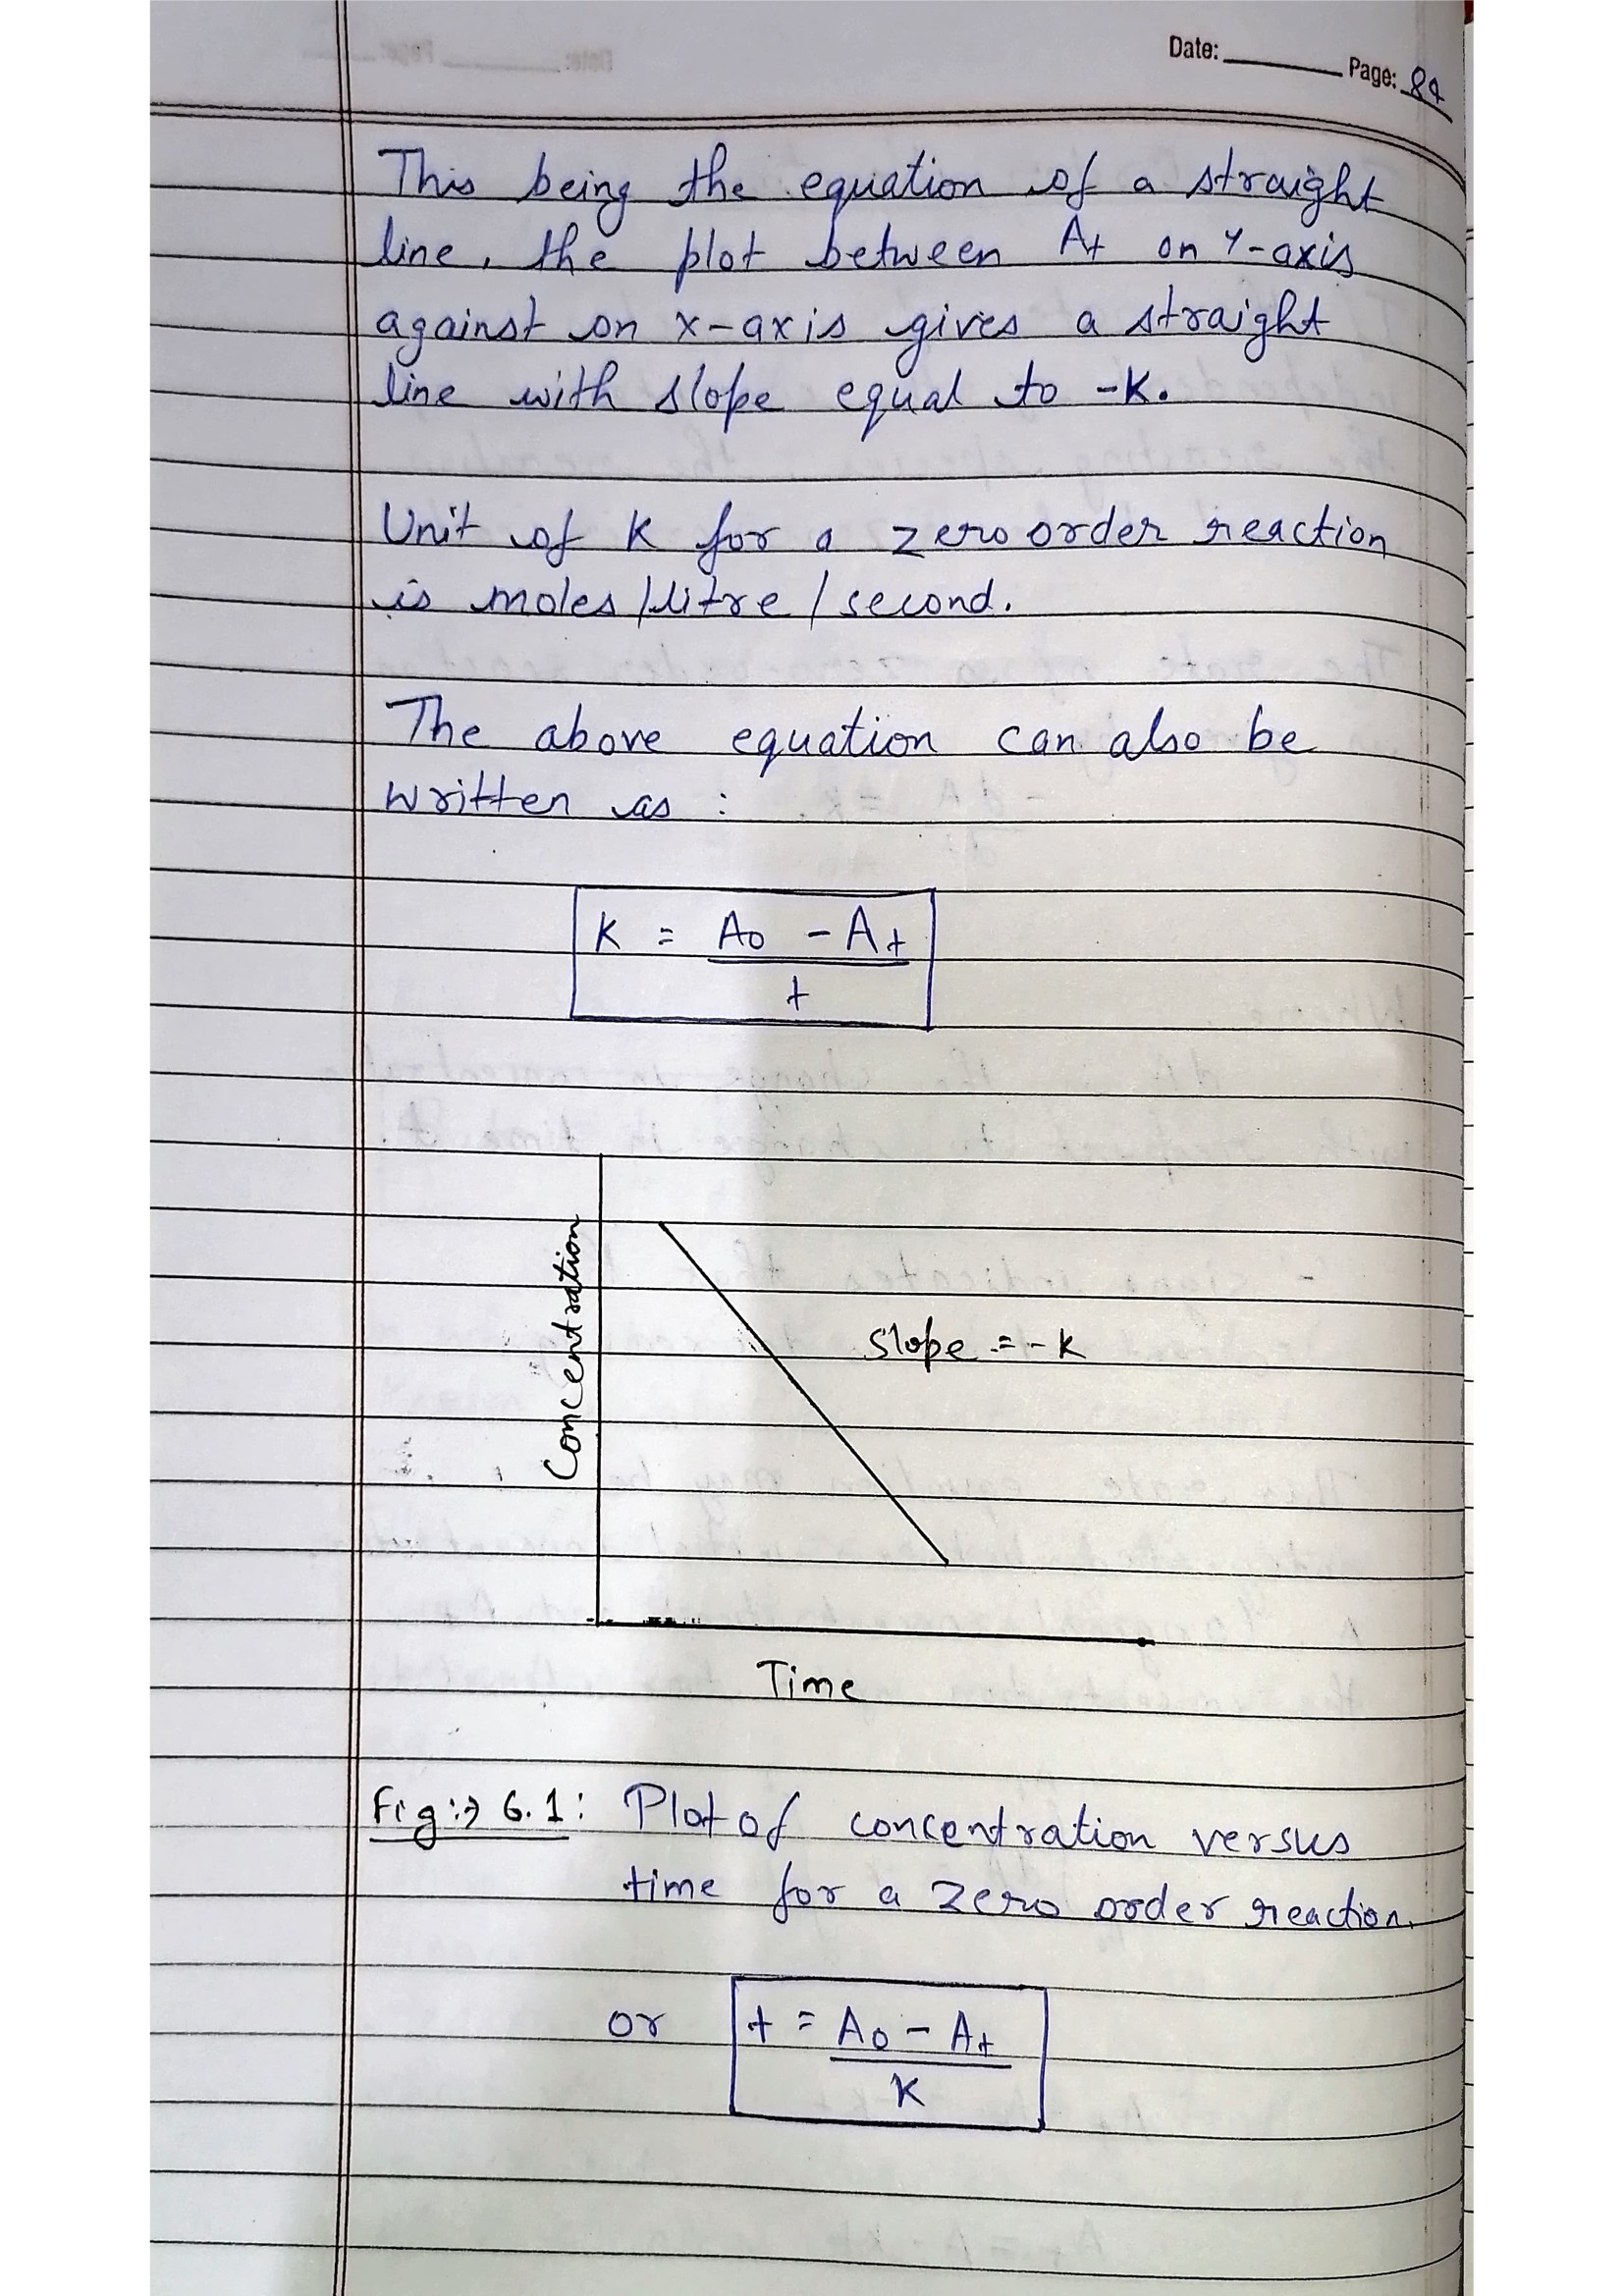 Date: Page: 84
This being the equation of a straight
line, the plot between At on Y-axis
against on x-axis gives a straight
line with slope equal to -K.
Unit of K for a zero order reaction
is moles/litre/second.
The above equation can also be
written as :
K = A0 - At
t
Concentration
Slope = -K
Time
Fig:→ 6.1: Plot of concentration versus
time for a zero order reaction.
or t = A0 - At
K